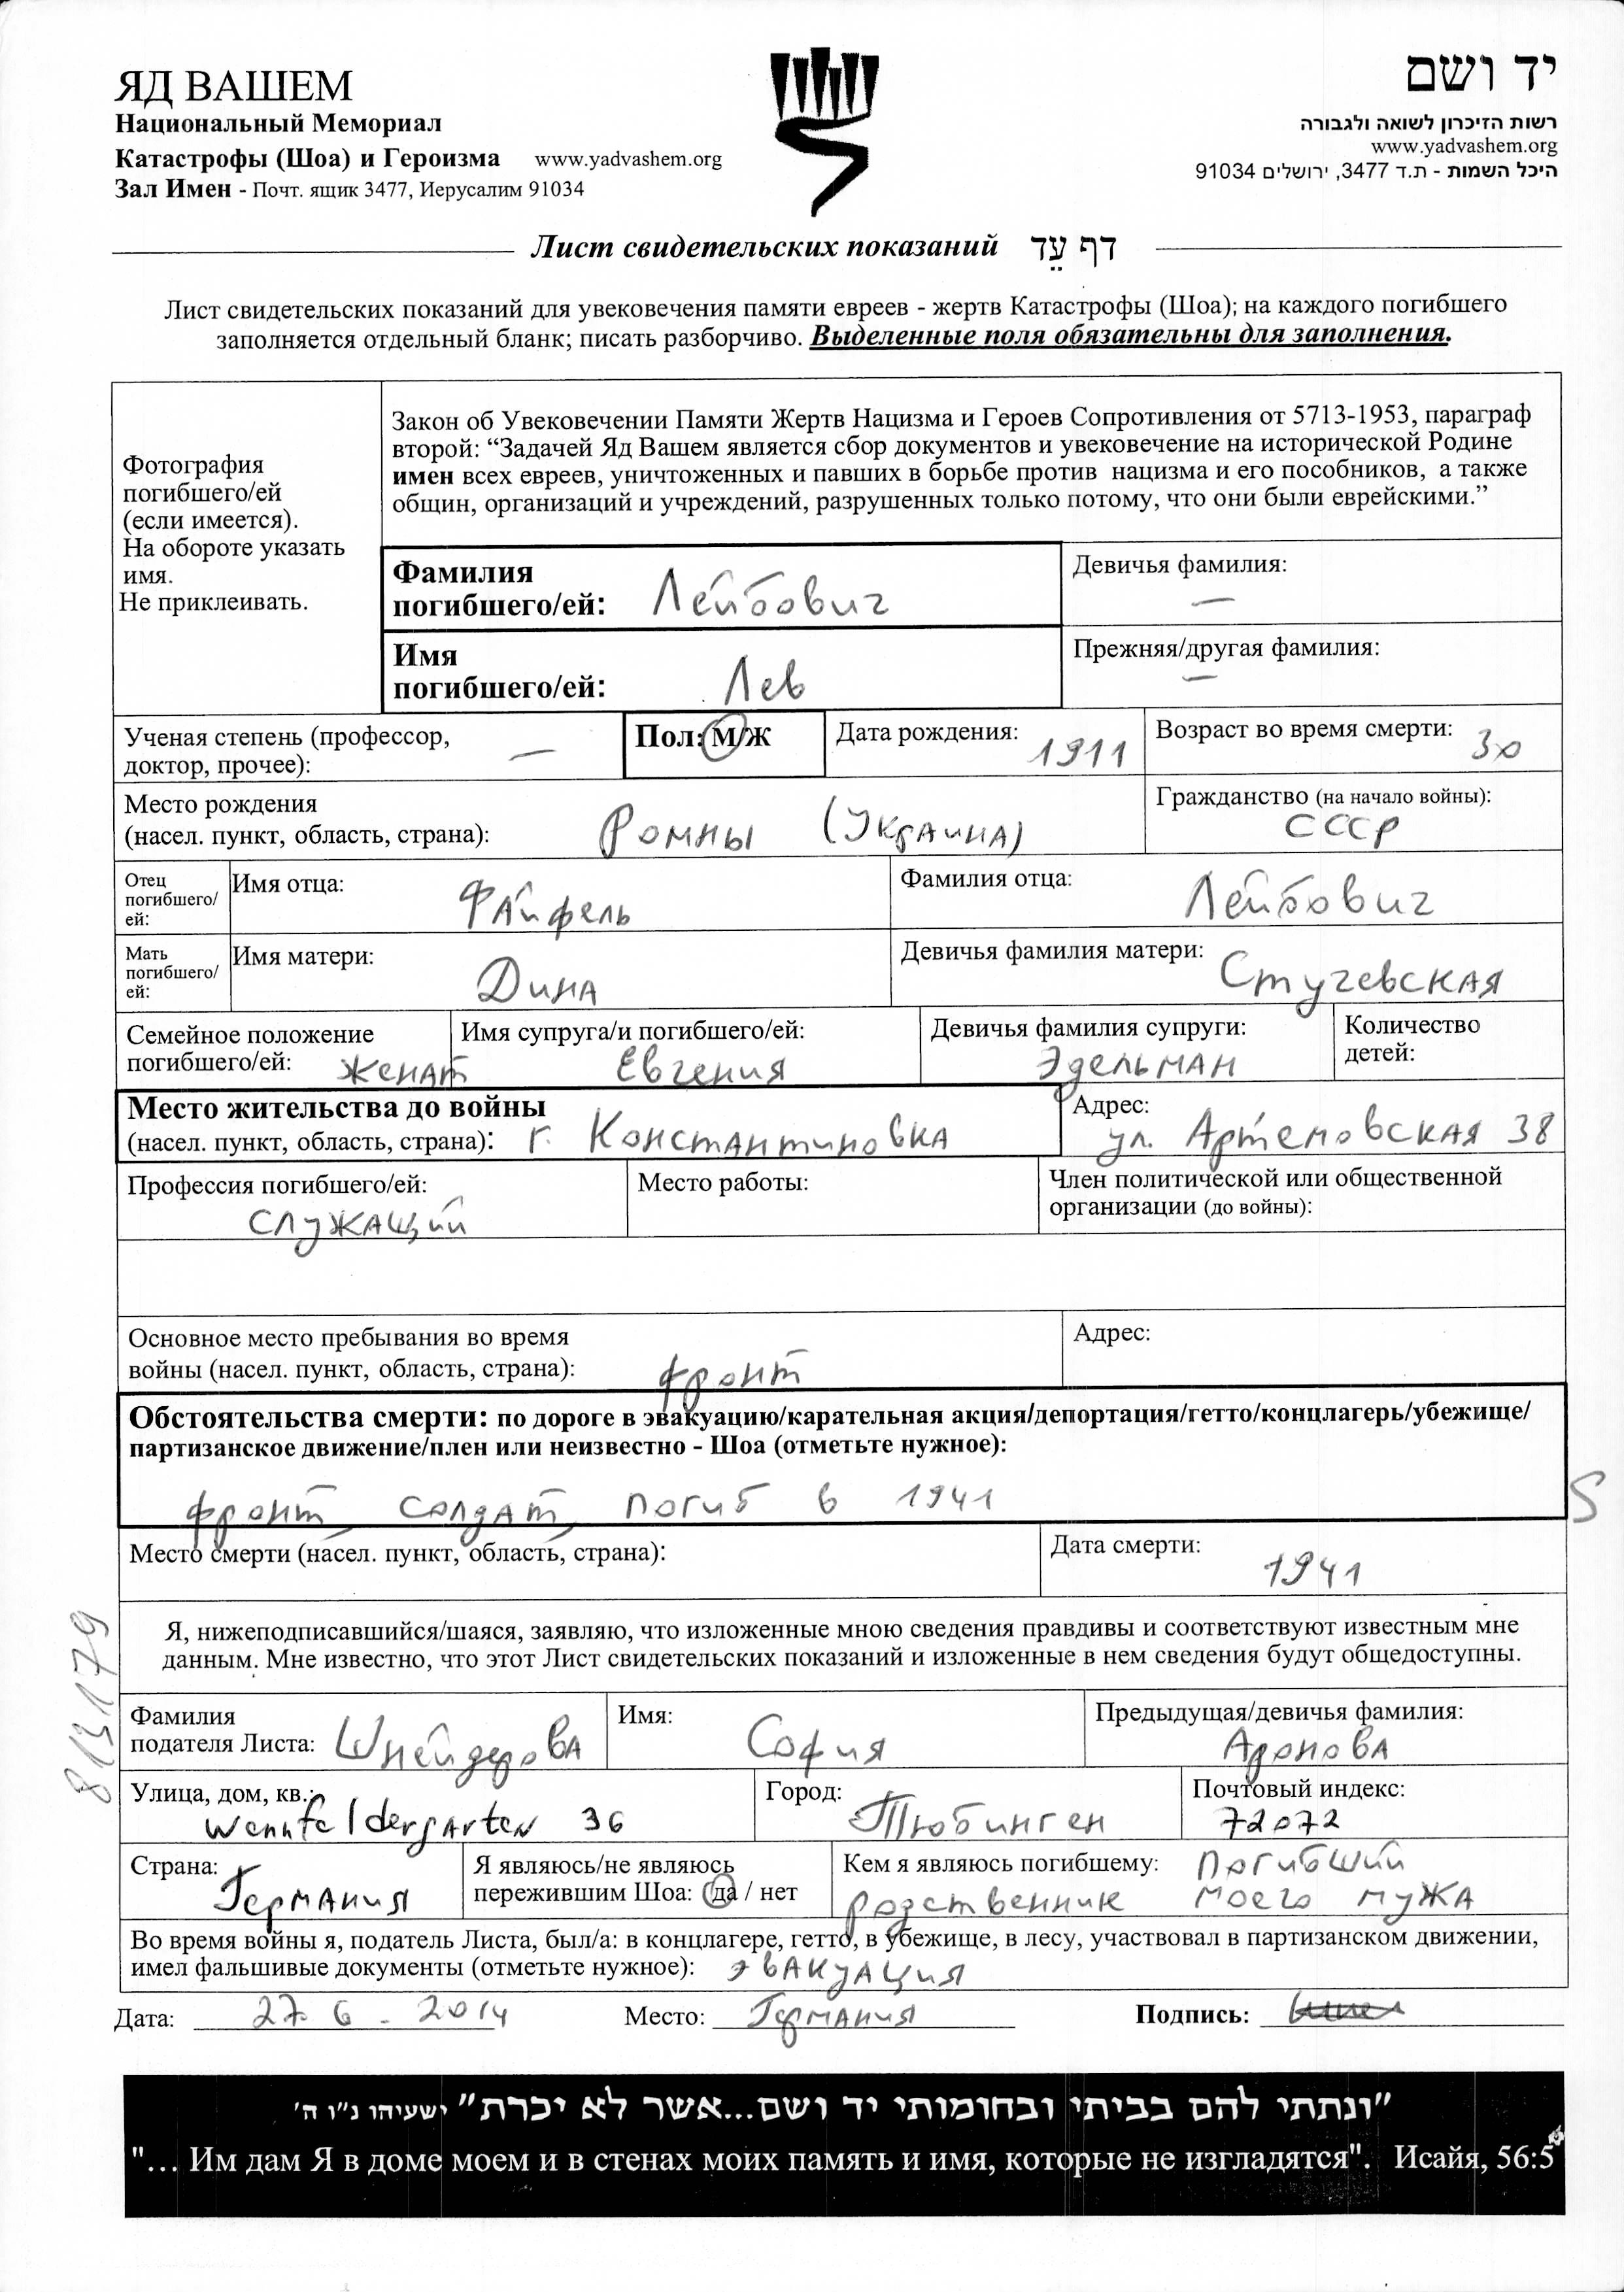 ЯД ВАШЕМ
Национальный Мемориал
Катастрофы (Шоа) и Героизма www.yadvashem.org
Зал Имен - Почт. ящик 3477, Иерусалим 91034
יד ושם
רשות הזיכרון לשואה ולגבורה
www.yadvashem.org
היכל השמות - ת.ד 3477, ירושלים 91034
Лист свидетельских показаний דף עֵד
Лист свидетельских показаний для увековечения памяти евреев - жертв Катастрофы (Шоа); на каждого погибшего
заполняется отдельный бланк; писать разборчиво. Выделенные поля обязательны для заполнения.
Фотография
погибшего/ей
(если имеется).
На обороте указать
имя.
Не приклеивать.
Закон об Увековечении Памяти Жертв Нацизма и Героев Сопротивления от 5713-1953, параграф
второй: “Задачей Яд Вашем является сбор документов и увековечение на исторической Родине
имен всех евреев, уничтоженных и павших в борьбе против нацизма и его пособников, а также
общин, организаций и учреждений, разрушенных только потому, что они были еврейскими.”
Фамилия
погибшего/ей: Лейбович
Девичья фамилия:
—
Имя
погибшего/ей: Лев
Прежняя/другая фамилия:
—
Ученая степень (профессор,
доктор, прочее): —
Пол: М/Ж
Дата рождения: 1911
Возраст во время смерти: 30
Место рождения
(насел. пункт, область, страна): Ромны (Украина)
Гражданство (на начало войны):
СССР
Отец
погибшего/
ей:
Имя отца: Файфель
Фамилия отца: Лейбович
Мать
погибшего/
ей:
Имя матери: Дина
Девичья фамилия матери: Стучевская
Семейное положение
погибшего/ей: женат
Имя супруга/и погибшего/ей:
Евгения
Девичья фамилия супруги:
Эдельман
Количество
детей:
Место жительства до войны
(насел. пункт, область, страна): г. Константиновка
Адрес:
ул. Артемовская 38
Профессия погибшего/ей:
служащий
Место работы:
Член политической или общественной
организации (до войны):
Основное место пребывания во время
войны (насел. пункт, область, страна): фронт
Адрес:
Обстоятельства смерти: по дороге в эвакуацию/карательная акция/депортация/гетто/концлагерь/убежище/
партизанское движение/плен или неизвестно - Шоа (отметьте нужное):
фронт, солдат, погиб в 1941
S
Место смерти (насел. пункт, область, страна):
Дата смерти:
1941
Я, нижеподписавшийся/шаяся, заявляю, что изложенные мною сведения правдивы и соответствуют известным мне
данным. Мне известно, что этот Лист свидетельских показаний и изложенные в нем сведения будут общедоступны.
Фамилия
подателя Листа: Шнейдерова
Имя: София
Предыдущая/девичья фамилия:
Аронова
Улица, дом, кв.:
Wennfeldergarten 36
Город:
Тюбинген
Почтовый индекс:
72072
Страна:
Германия
Я являюсь/не являюсь
пережившим Шоа: да / нет
Кем я являюсь погибшему: погибший
родственник моего мужа
Во время войны я, податель Листа, был/а: в концлагере, гетто, в убежище, в лесу, участвовал в партизанском движении,
имел фальшивые документы (отметьте нужное): эвакуация
Дата: 27. 6 - 2014 Место: Германия Подпись:
"ונתתי להם בביתי ובחומותי יד ושם...אשר לא יכרת" ישעיהו נ"ו ה'
"... Им дам Я в доме моем и в стенах моих память и имя, которые не изгладятся". Исайя, 56:5